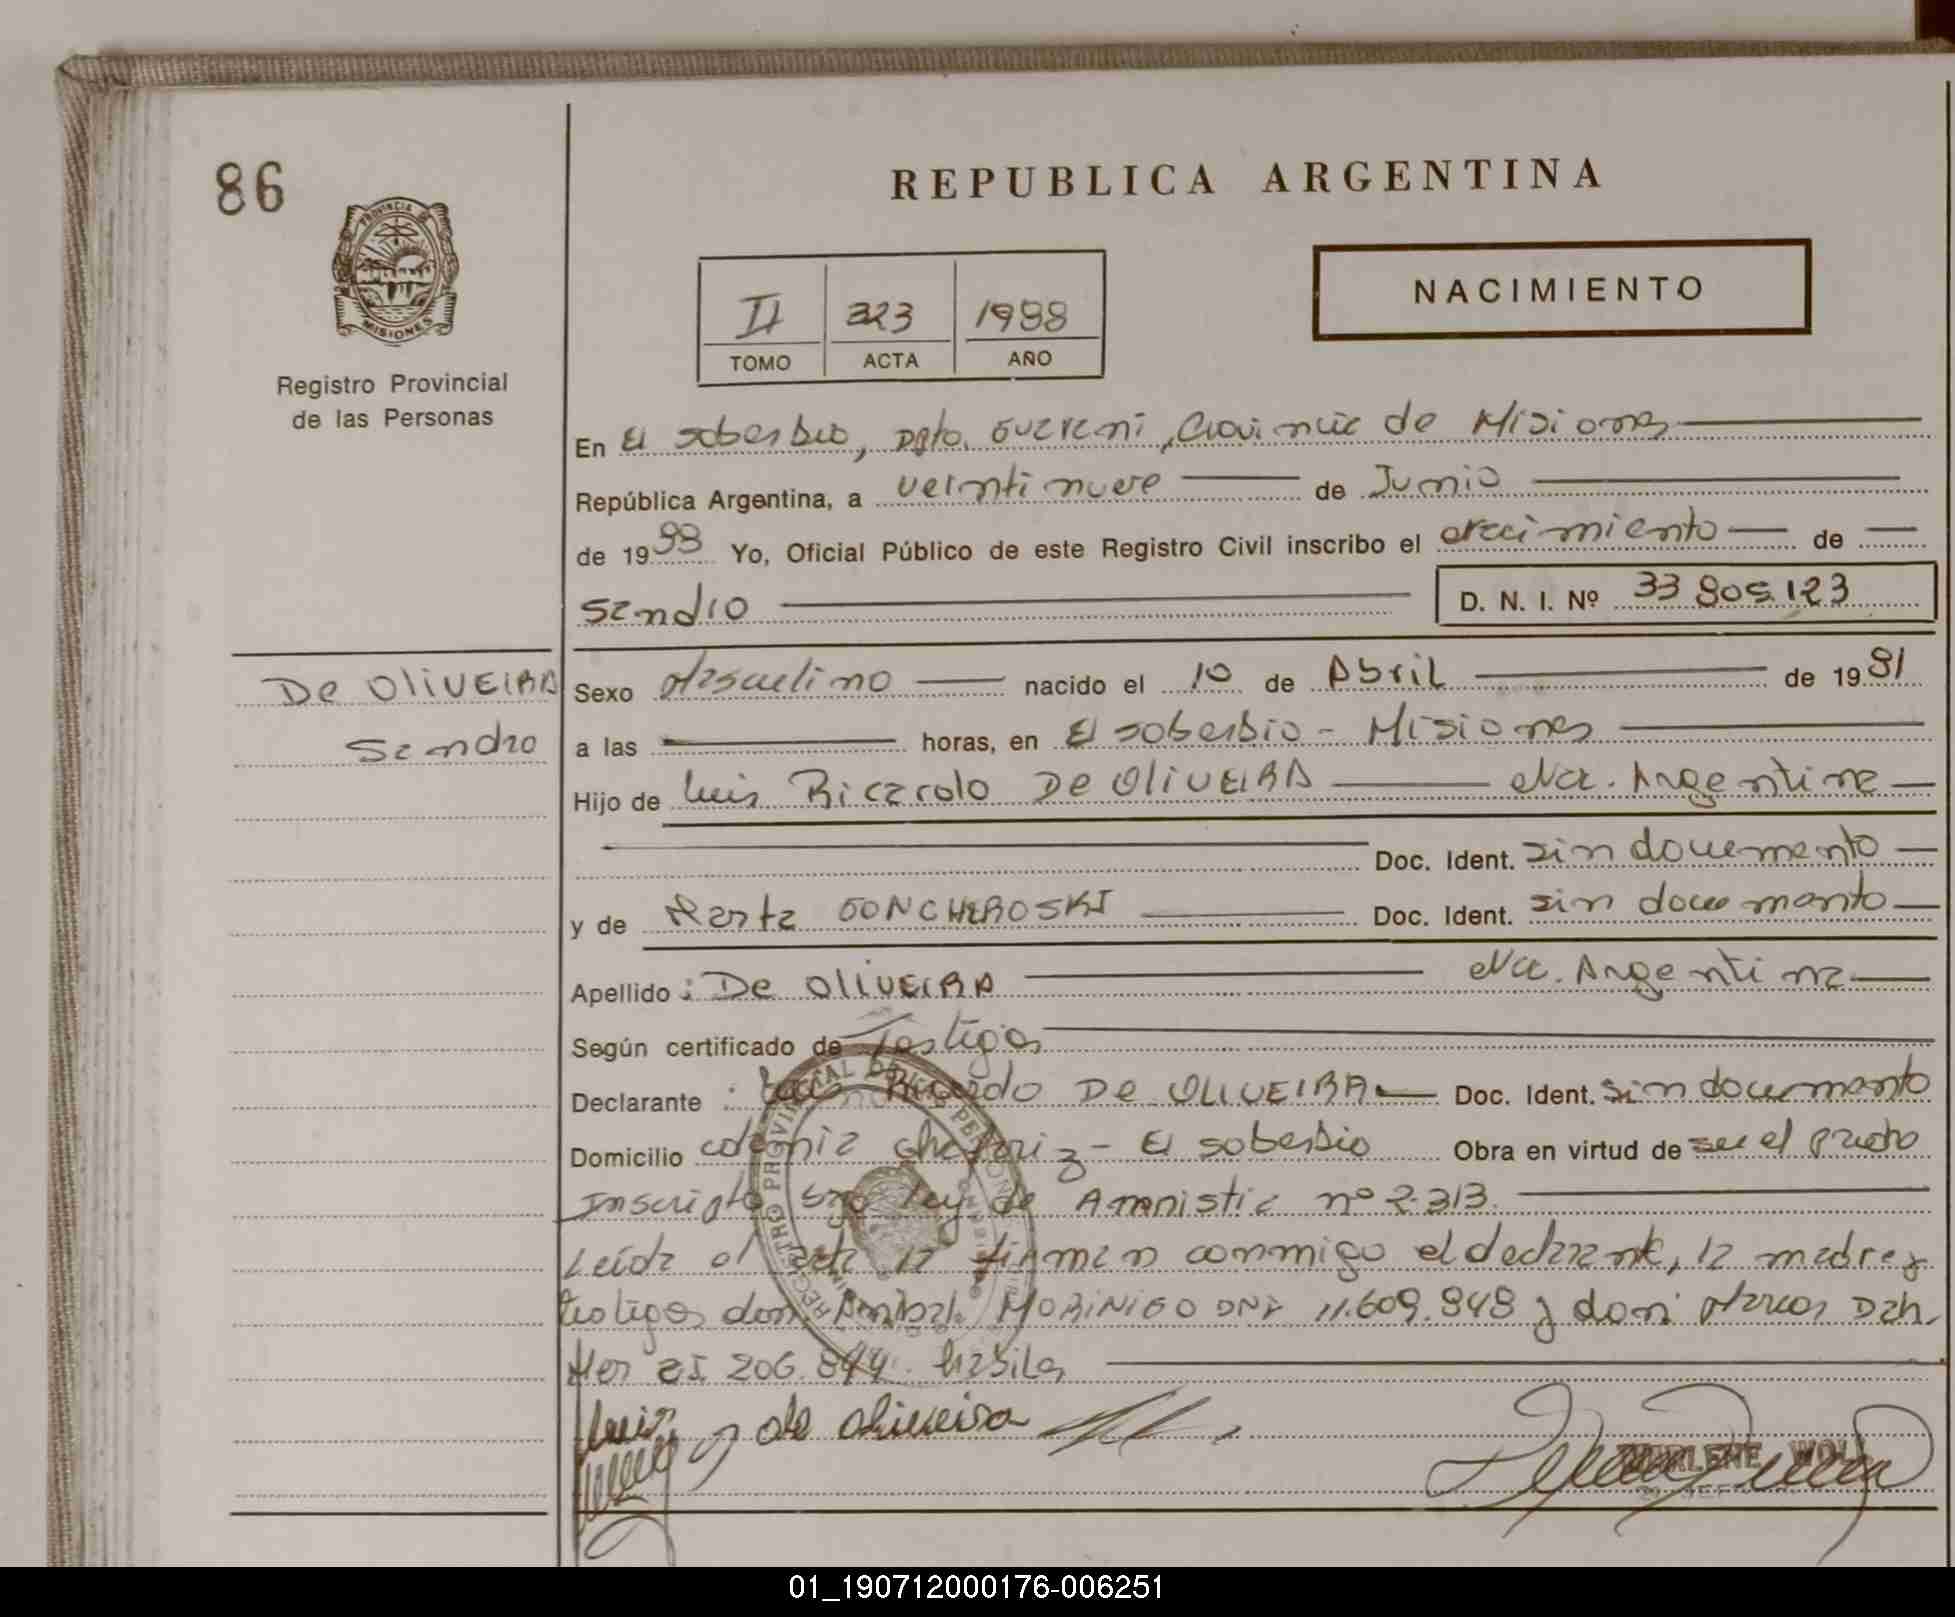 86
REPUBLICA ARGENTINA
PROVINCIA DE
MISIONES
Registro Provincial
de las Personas
NACIMIENTO
II 323 1988
TOMO ACTA AÑO
En El Soberbio, Dpto. Guarani, Provincia de Misiones
República Argentina, a veintinueve de Junio
de 1988 Yo, Oficial Público de este Registro Civil inscribo el Nacimiento de
Sandro D. N. I. Nº 33 805.123
De OLIVEIRA
Sandro
Sexo Masculino nacido el 10 de Abril de 1981
a las horas, en El Soberbio - Misiones
Hijo de Luis Ricardo De OLIVEIRA Nac. Argentina
Doc. Ident. sin documento
y de Marta GONCHEROSKI Doc. Ident. sin documento
Apellido: De OLIVEIRA Nac. Argentina
Según certificado de Testigos
Declarante: Luis Ricardo De OLIVEIRA Doc. Ident. sin documento
Domicilio colonia El Soberbio Obra en virtud de ser el padre
Inscripto bajo Ley de Amnistia nº 2.313.
Leida el acta la firman conmigo el declarante, la madre y
testigos don Anibal MORINIGO DNI 11.609.848 y don Marcos Dah
mer CI. 206.844. habiles
Luis de oliveira
MARLENE
01_190712000176-006251